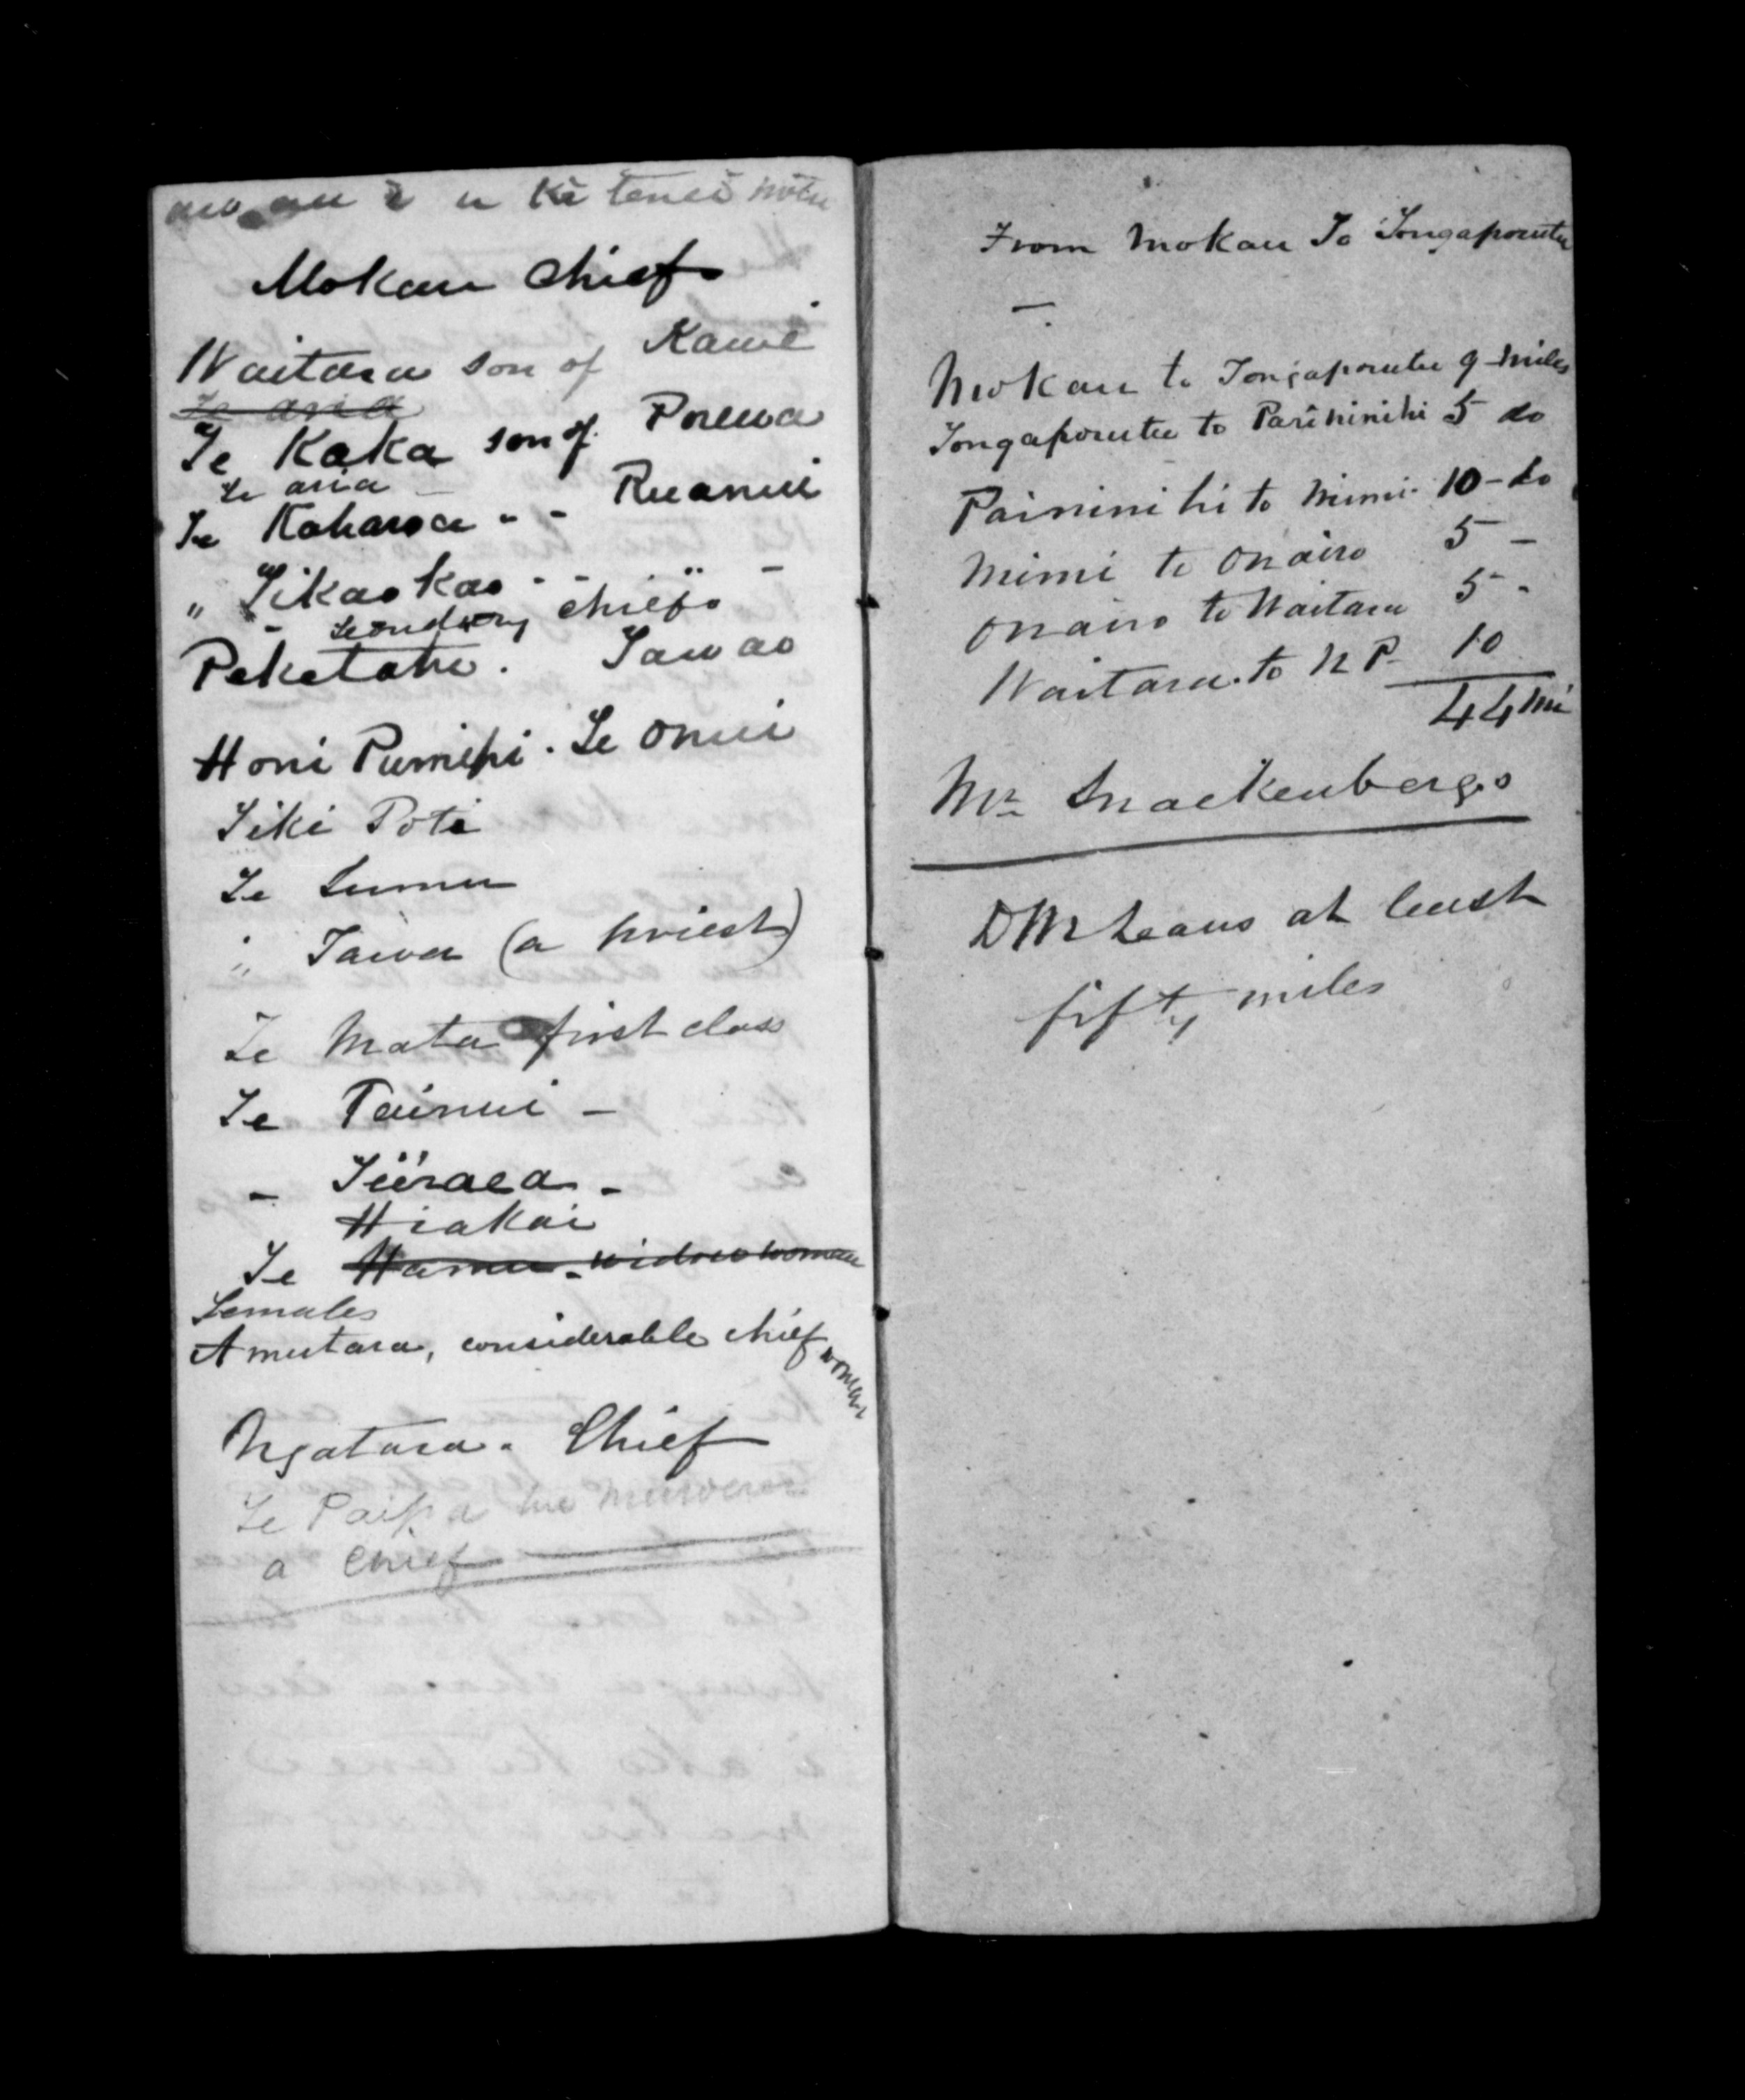 u ki tenei motu
Mokau Chiefs
Waitara son of Kawe
Te aria
Te Kaka son of Porewa
Te aria
Te Koharoa - - Ruanui
" Tikaokao - - " -
Secondary Chiefs
Peketahi. Tawao
Honi Pumipi. Te Onui
Tiki Poti
Te Sumu
" Tawa (a priest)
Te Mata first class
Te Tainui -
- Tiiraea -
Hiakai
Te Hamu - widow woman
Females
Amutara, considerable chief woman
Ngatara. Chief
Te Paipa the murderer
a Chief
From Mokau To Tongaporutu
Mokau to Tongaporutu 9 miles
Tongaporutu to Parininihi 5 do
Parininihi to Mimi - 10 - do
Mimi to Onairo 5 -
Onairo to Waitara 5 -
Waitara to N P - 10
44 mi
Mr Snackenbergs
D McLeans at least
fifty miles